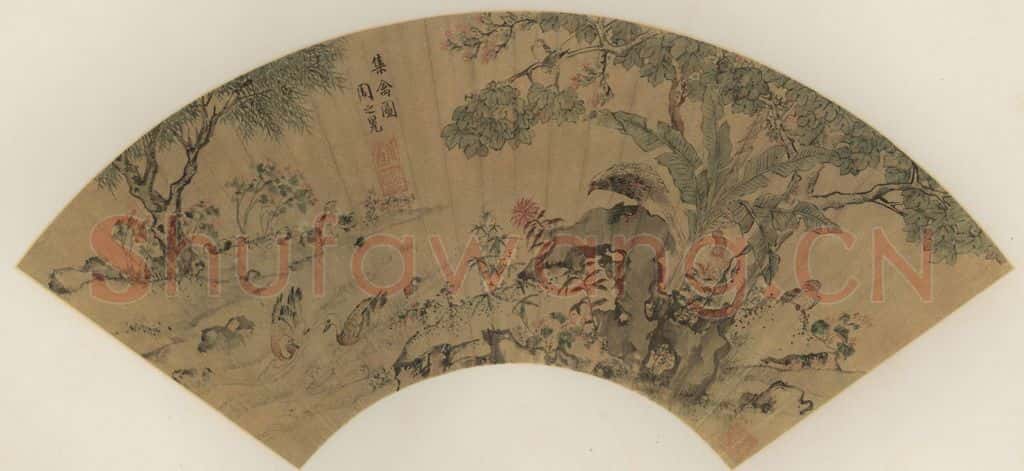 集禽圖
周之冕
Shufawang.CN